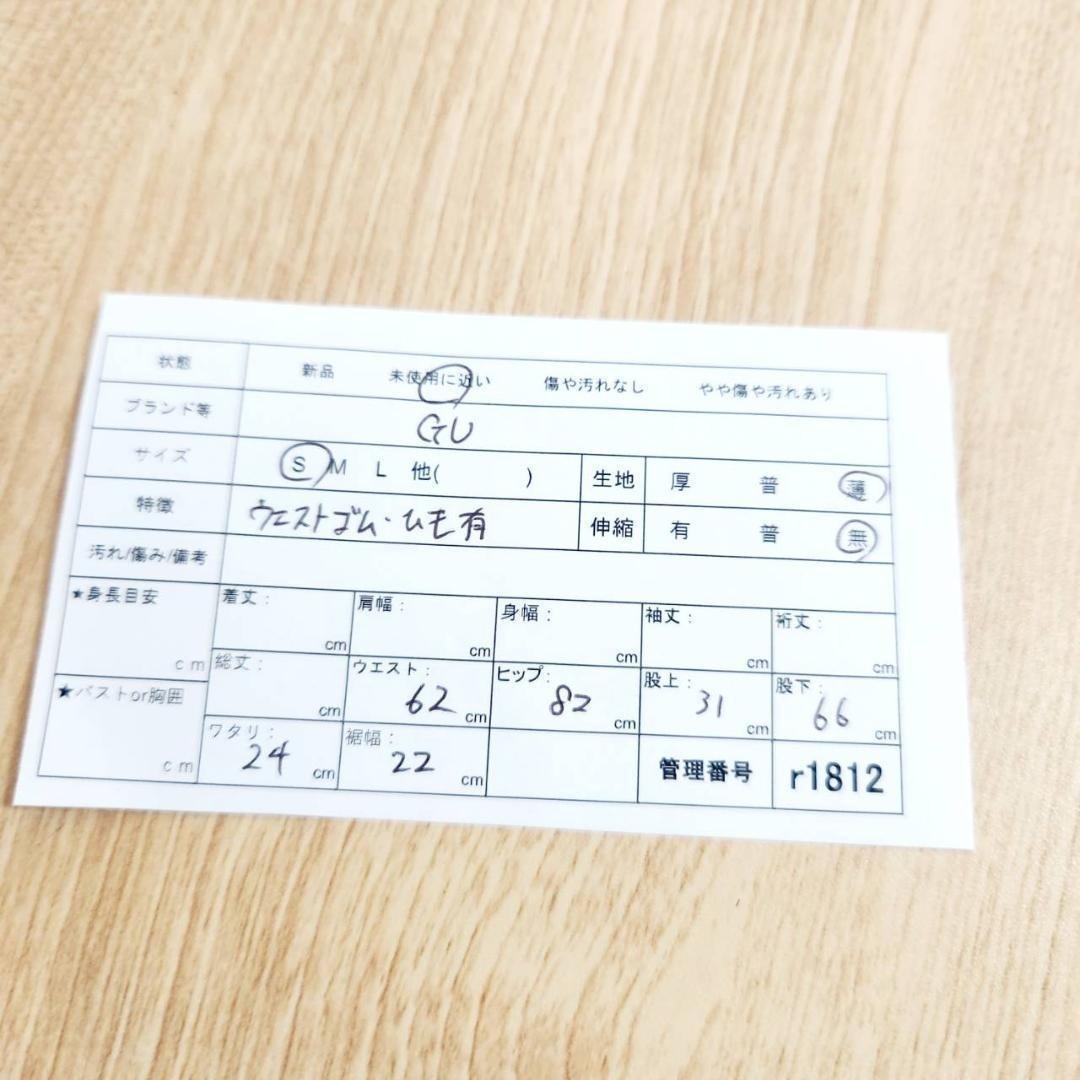 状態 新品 未使用に近い 傷や汚れなし やや傷や汚れあり
ブランド等 GU
サイズ S M L 他( ) 生地 厚 普 薄
特徴 ウエストゴム・ひも有 伸縮 有 普 無
汚れ/傷み/備考
★身長目安 cm 着丈: cm 肩幅: cm 身幅: cm 袖丈: cm 裄丈: cm
総丈: cm ウエスト: 62 cm ヒップ: 82 cm 股上: 31 cm 股下: 66 cm
★バストor胸囲 cm ワタリ: 24 cm 裾幅: 22 cm 管理番号 r1812